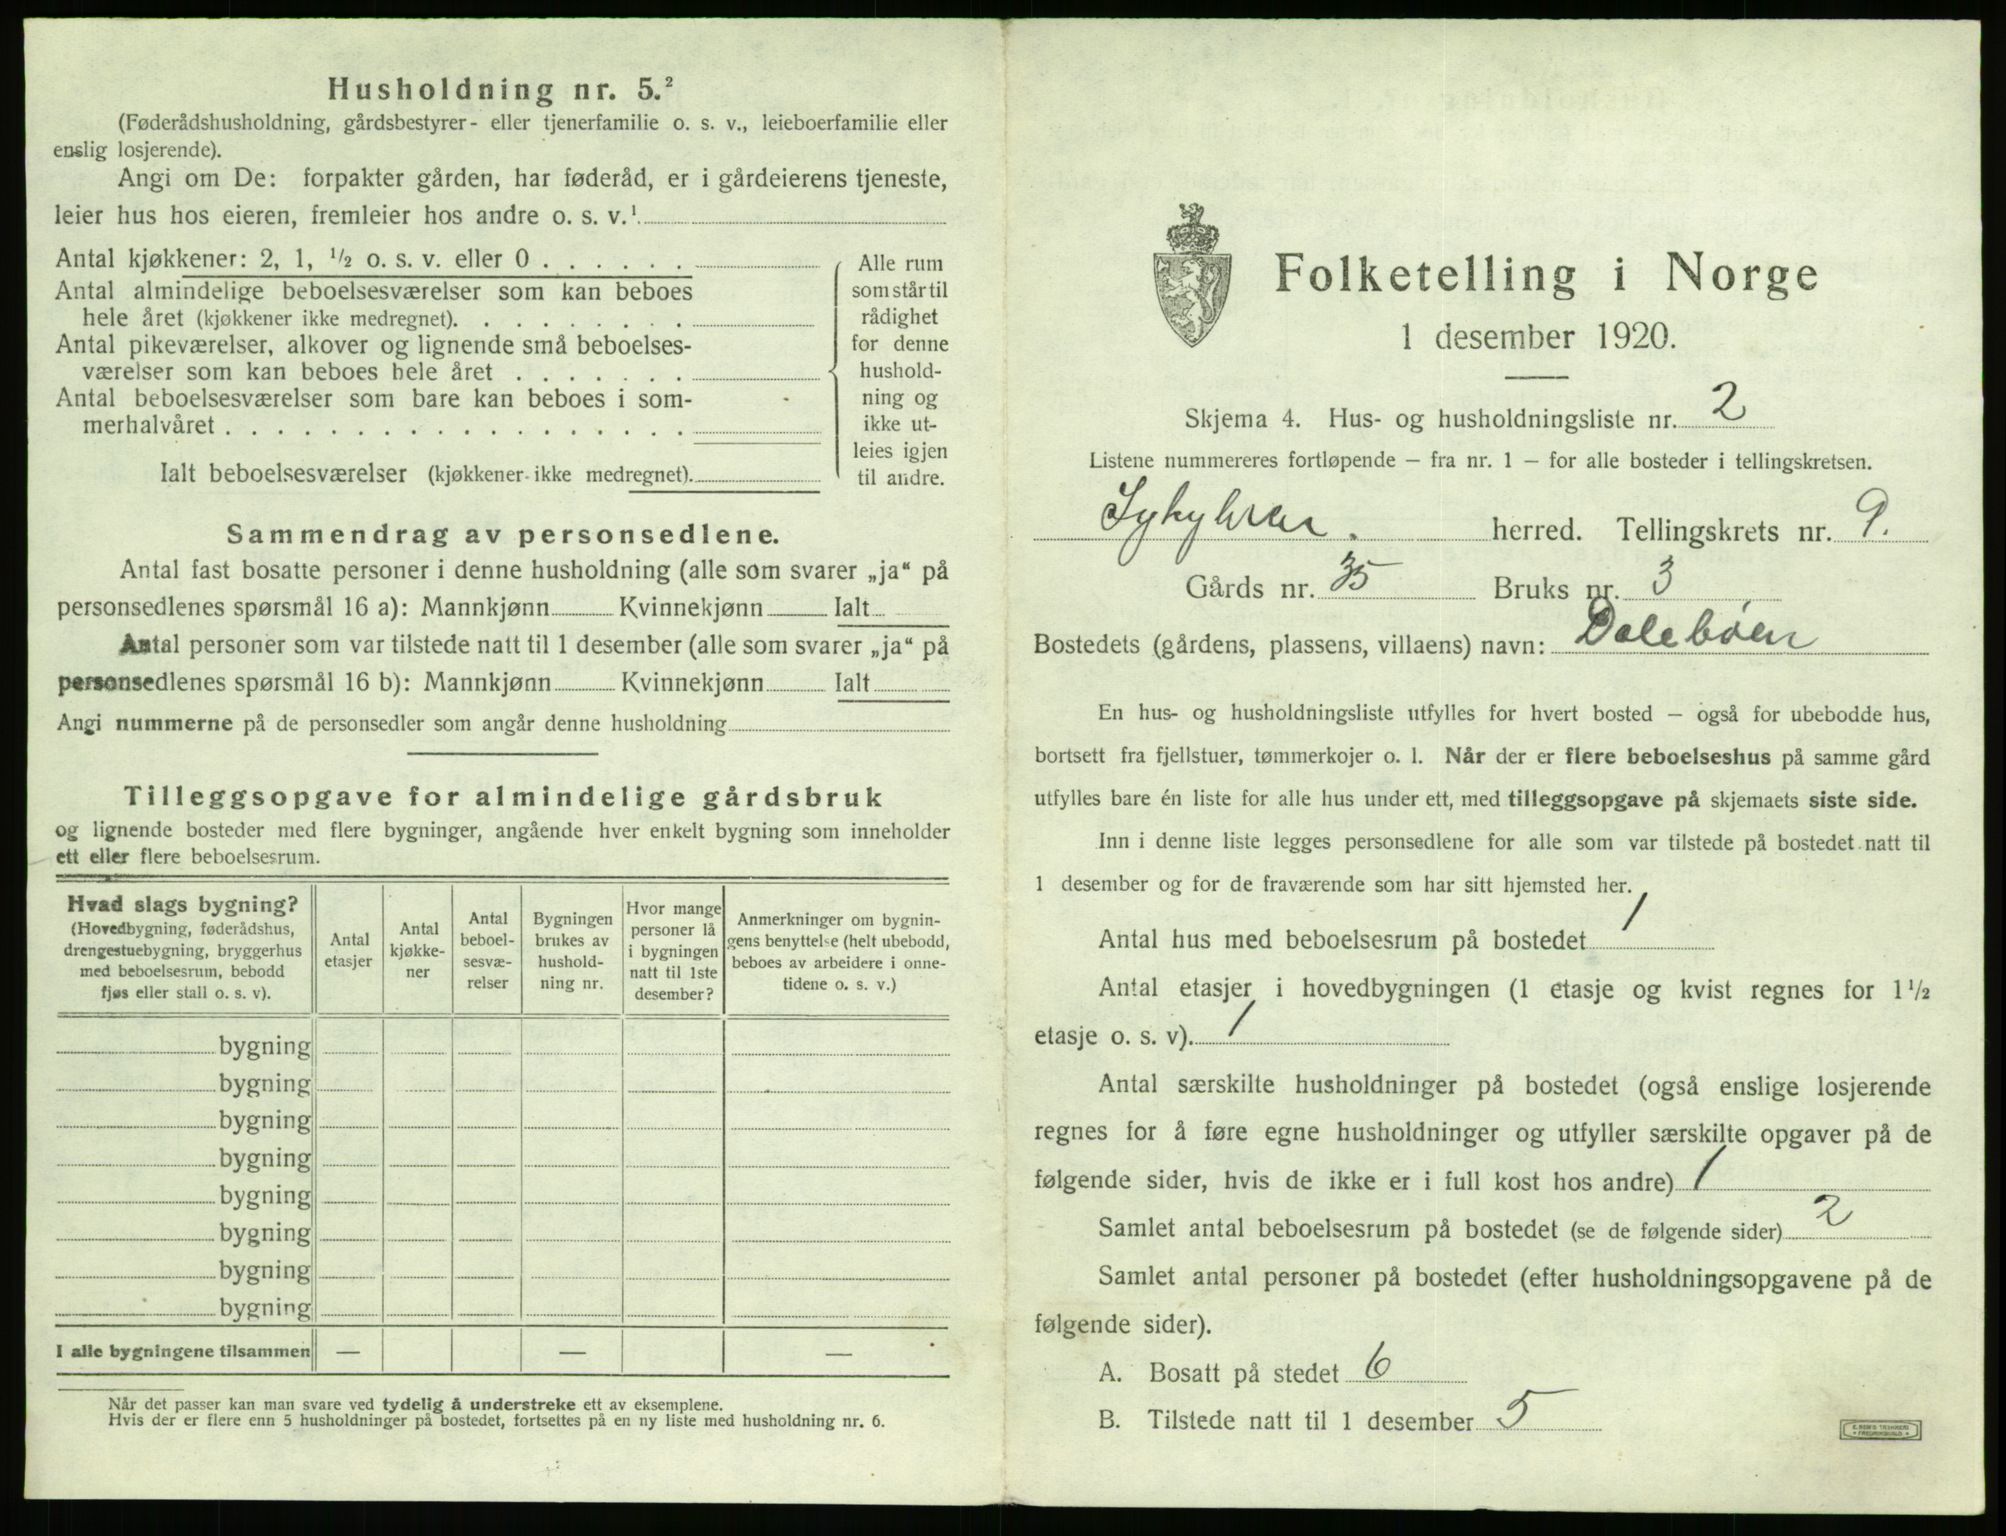 Husholdning nr. 5.²
(Føderådshusholdning, gårdsbestyrer- eller tjenerfamilie o. s. v., leieboerfamilie eller
enslig losjerende).
Angi om De: forpakter gården, har føderåd, er i gårdeierens tjeneste,
leier hus hos eieren, fremleier hos andre o. s. v.¹
Antal kjøkkener: 2, 1, ½ o. s. v. eller 0 . . . . . .
Antal almindelige beboelsesværelser som kan beboes
hele året (kjøkkener ikke medregnet). . . . . . . . .
Antal pikeværelser, alkover og lignende små beboelses-
værelser som kan beboes hele året . . . . . . .
Antal beboelsesværelser som bare kan beboes i som-
merhalvåret . . . . . . . . . . . . . . . . . .
Ialt beboelsesværelser (kjøkkener ikke medregnet).
Alle rum
som står til
rådighet
for denne
hushold-
ning og
ikke ut-
leies igjen
til andre.
Sammendrag av personsedlene.
Antal fast bosatte personer i denne husholdning (alle som svarer „ja“ på
personsedlenes spørsmål 16 a): Mannkjønn Kvinnekjønn Ialt
Antal personer som var tilstede natt til 1 desember (alle som svarer „ja“ på
personsedlenes spørsmål 16 b): Mannkjønn Kvinnekjønn Ialt
Angi nummerne på de personsedler som angår denne husholdning
Tilleggsopgave for almindelige gårdsbruk
og lignende bosteder med flere bygninger, angående hver enkelt bygning som inneholder
ett eller flere beboelsesrum.
Hvad slags bygning?
(Hovedbygning, føderådshus,
drengestuebygning, bryggerhus
med beboelsesrum, bebodd
fjøs eller stall o. s. v).
Antal
etasjer
Antal
kjøkke-
ner
Antal
beboel-
sesvæ-
relser
Bygningen
brukes av
hushold-
ning nr.
Hvor mange
personer lå
i bygningen
natt til 1ste
desember?
Anmerkninger om bygnin-
gens benyttelse (helt ubebodd,
beboes av arbeidere i onne-
tidene o. s. v.)
bygning
bygning
bygning
bygning
bygning
bygning
bygning
bygning
I alle bygningene tilsammen — — —
Når det passer kan man svare ved tydelig å understreke ett av eksemplene.
Hvis der er flere enn 5 husholdninger på bostedet, fortsettes på en ny liste med husholdning nr. 6.
Folketelling i Norge
1 desember 1920.
Skjema 4. Hus- og husholdningsliste nr. 2
Listene nummereres fortløpende – fra nr. 1 – for alle bosteder i tellingskretsen.
herred. Tellingskrets nr. 9.
Gårds nr. 35 Bruks nr. 3
Bostedets (gårdens, plassens, villaens) navn: Dalebøen
En hus- og husholdningsliste utfylles for hvert bosted – også for ubebodde hus,
bortsett fra fjellstuer, tømmerkojer o. l. Når der er flere beboelseshus på samme gård
utfylles bare én liste for alle hus under ett, med tilleggsopgave på skjemaets siste side.
Inn i denne liste legges personsedlene for alle som var tilstede på bostedet natt til
1 desember og for de fraværende som har sitt hjemsted her.
Antal hus med beboelsesrum på bostedet 1
Antal etasjer i hovedbygningen (1 etasje og kvist regnes for 1½
etasje o. s. v). 1
Antal særskilte husholdninger på bostedet (også enslige losjerende
regnes for å føre egne husholdninger og utfyller særskilte opgaver på de
følgende sider, hvis de ikke er i full kost hos andre) 1
Samlet antal beboelsesrum på bostedet (se de følgende sider) 2
Samlet antal personer på bostedet (efter husholdningsopgavene på de
følgende sider).
A. Bosatt på stedet 6
B. Tilstede natt til 1 desember 5